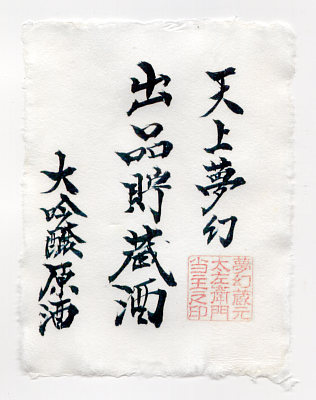 天上夢幻
出品貯蔵酒
大吟醸原酒
夢幻蔵元
太左衛門
当主之印